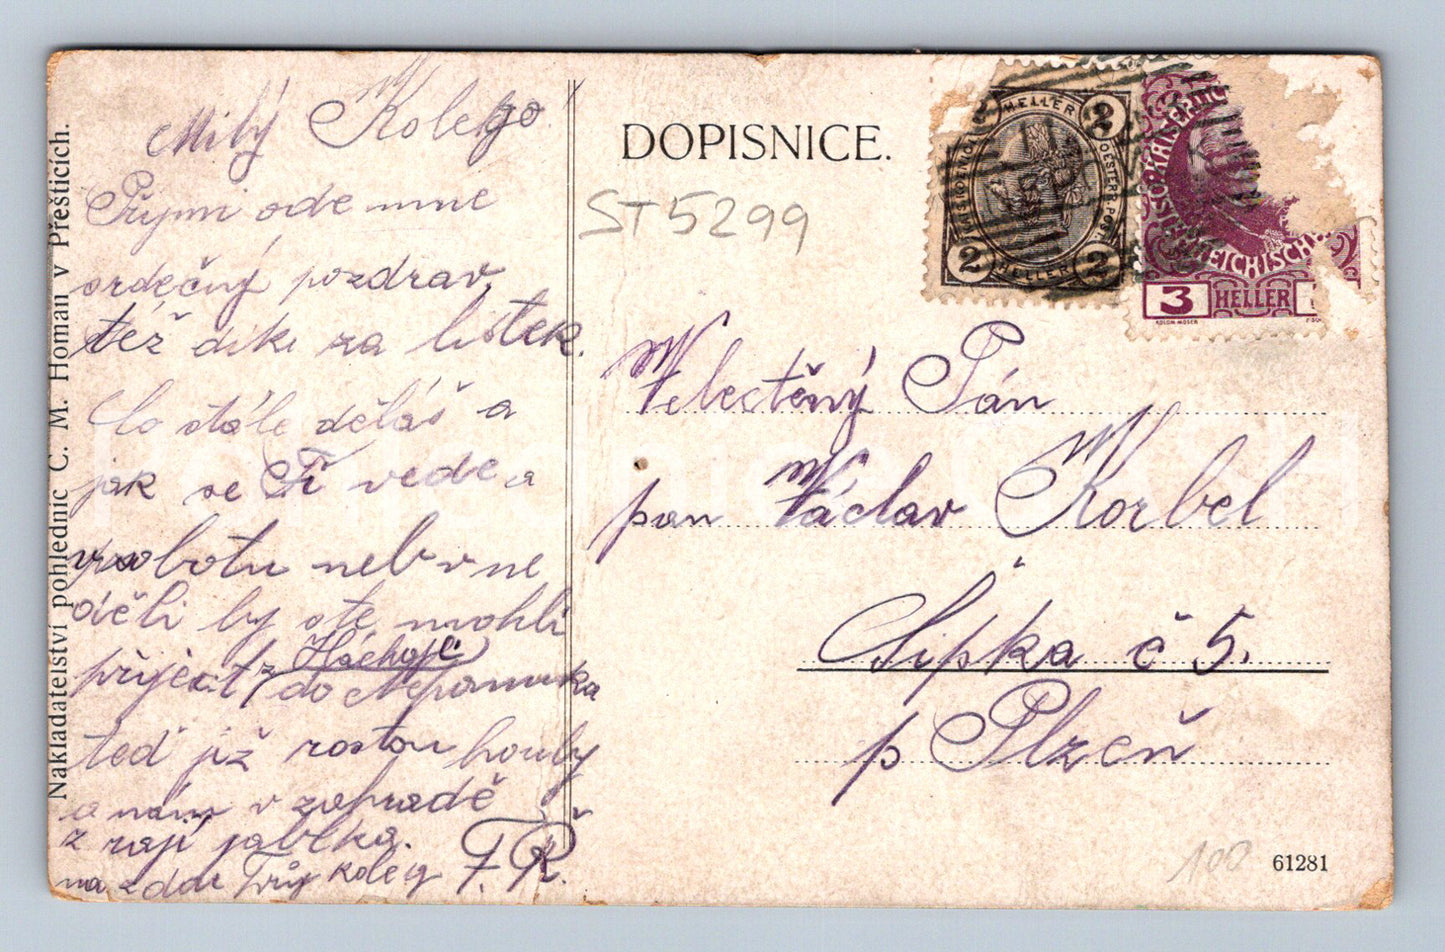 Milý Kolego
Přijmi ode mne
srdečný pozdrav,
též díki za lístek.
Co stále děláš a
jak se Ti vede a
v sobotu neb v ne
děli by ste mohli
přiject z Háchoje
do Nepomuka
teď již rostou houby
a nám v zahradě
z rají jablka.
na zdar Tvůj koleg F.Ř.
Nakladatelství pohlednic C. M. Homan v Přešticích.
DOPISNICE.
ST5299
2 HELLER 2
2 HELLER 2
3 HELLER
KOLON MOSER
Velectěný Pán
pan Václav Korbel
Sipka č 5.
p Plzeň
100
61281